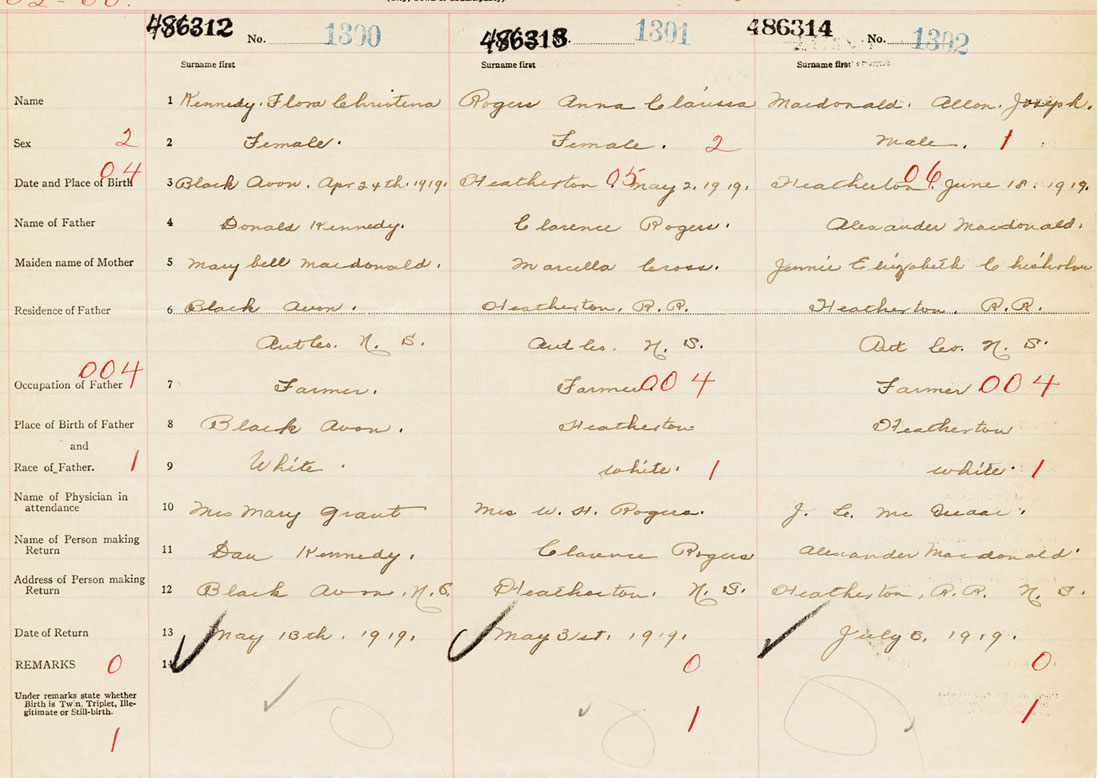 486312 No. 1300 486313 No. 1301 486314 No. 1302
Surname first Surname first Surname first
Name 1 Kennedy. Flora Christena Rogers Anna Clarissa Macdonald. Allon. Joseph.
Sex 2 2 Female. Female. 2 Male. 1
04 05 06
Date and Place of Birth 3 Black Avon. Apr 24th. 1919. Heatherton May 2. 1919. Heatherton. June 18. 1919.
Name of Father 4 Donald Kennedy. Clarence Rogers. Alexander Macdonald.
Maiden name of Mother 5 Mary bell Macdonald. Marcella Cross. Jennie Elizabeth Chisholm
Residence of Father 6 Black Avon. Heatherton. R.R. Heatherton. R.R.
Ant Co. N. S. Ant Co. N. S. Ant Co. N. S.
004
Occupation of Father 7 Farmer. Farmer 004 Farmer 004
Place of Birth of Father 8 Black Avon. Heatherton Heatherton
and
Race of Father. 1 9 White. white. 1 white. 1
Name of Physician in
attendance 10 Mrs Mary Grant Mrs W. H. Rogers. J. C. Mc Isaac.
Name of Person making
Return 11 Dan Kennedy. Clarence Rogers Alexander Macdonald.
Address of Person making
Return 12 Black Avon. N.S. Heatherton. N. S. Heatherton, R.R. N. S.
Date of Return 13 May 13th. 1919. May 31st. 1919. July 8, 1919.
REMARKS 0 14 0 0
Under remarks state whether
Birth is Twin, Triplet, Ille-
gitimate or Still-birth. 1 1
1